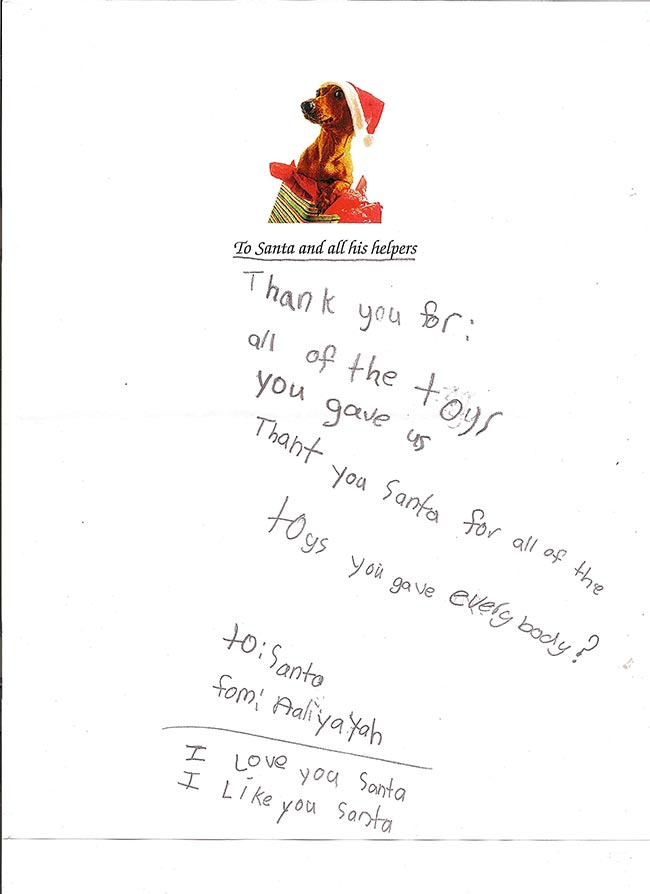 To Santa and all his helpers
Thank you for:
all of the toys
you gave us
Thant you Santa for all of the
toys you gave everybody?
to: Santa
fom: Aaliyayah
I Love you Santa
I Like you Santa